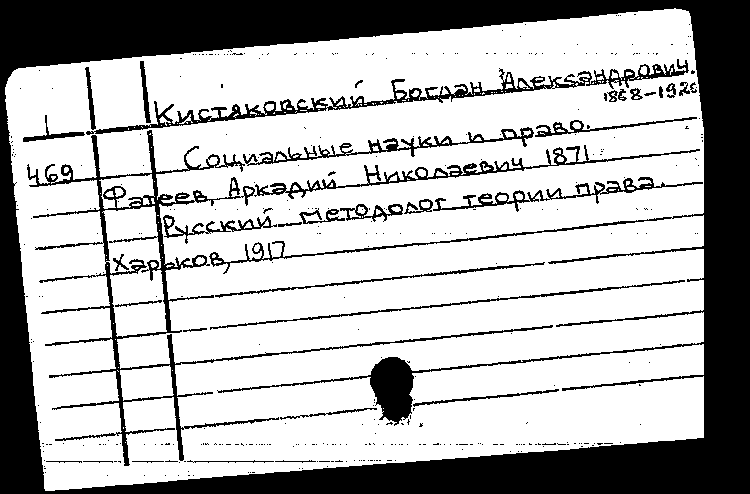 Кистяковский Богдан Александрович.
1868-1920
1
469 Социальные науки и право.
Фатеев, Аркадий Николаевич 1871
Русский методолог теории права.
Харьков, 1917